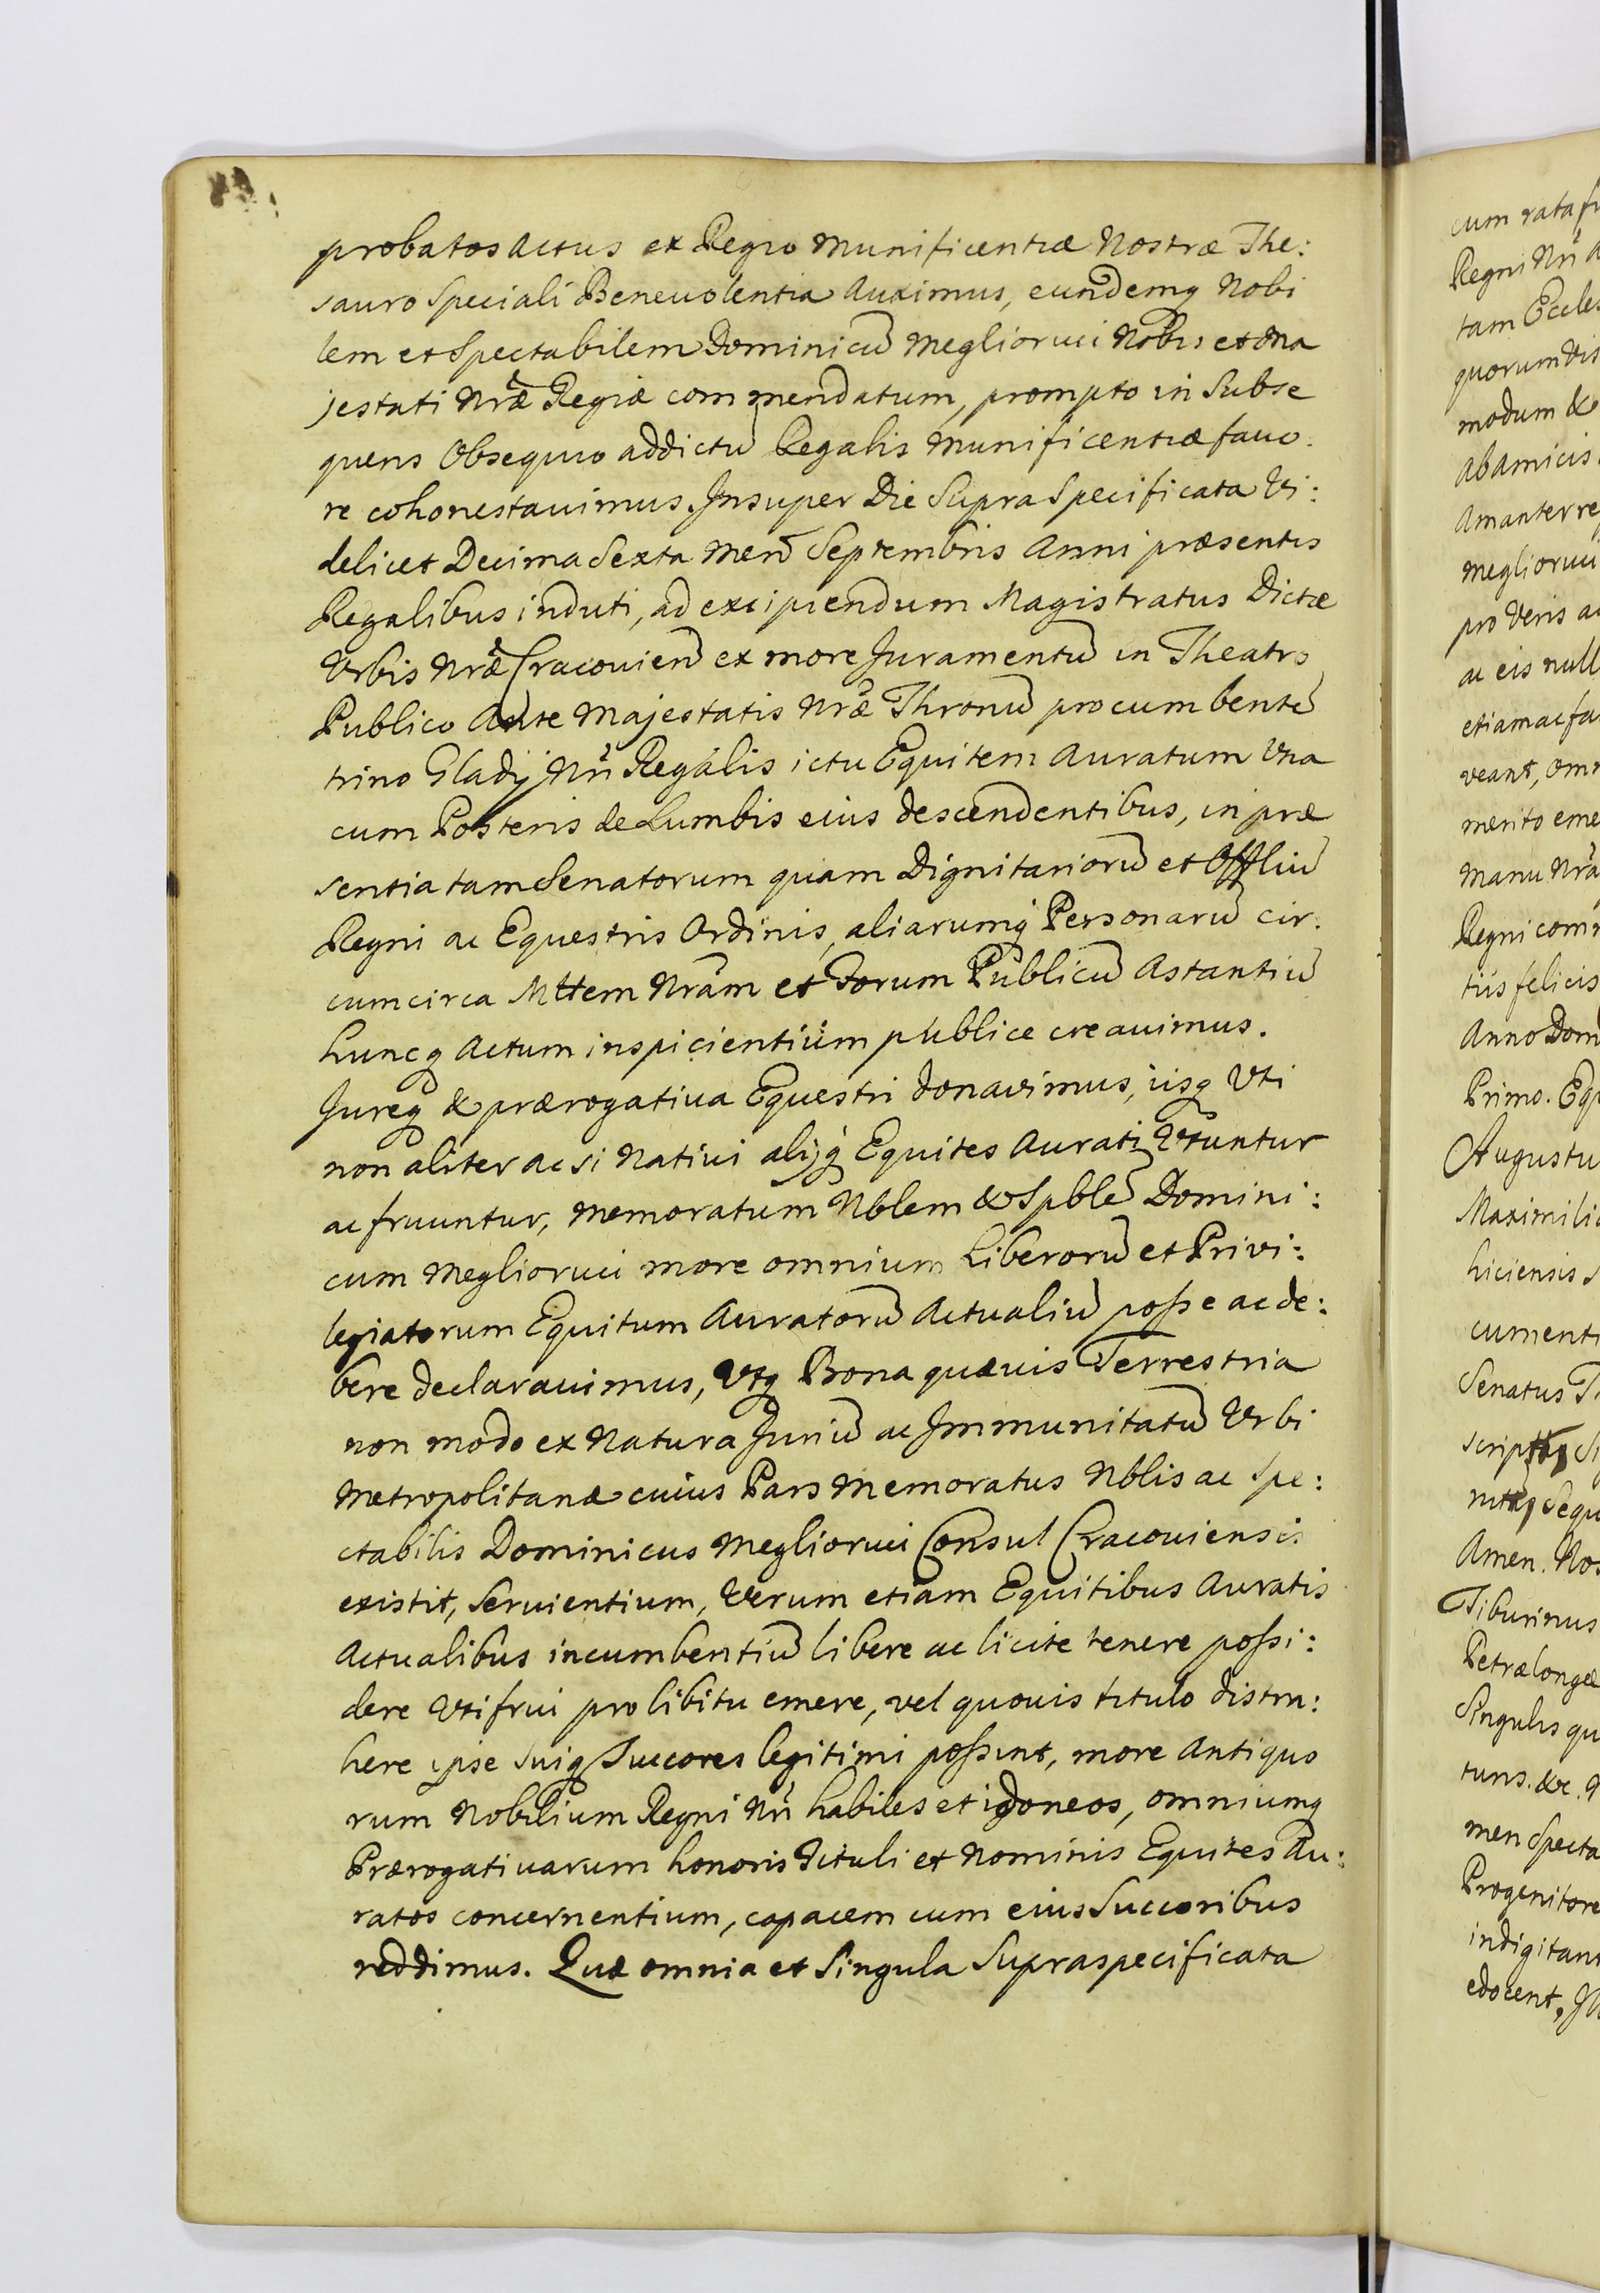 probatos actus ex Regio Munificentiæ Nostræ The:
sauro Speciali Beneuolentia Auximus, eundemq Nobi
lem et Spectabilem Dominicū Megliorucci Nobis et Ma
jestati Nræ Regiæ commendatum, prompto in Subse
quens Obsequio addictū Regalis Munificentiæ fauo:
re cohonestauimus. Insuper Die Supra Specificata Vi:
delicet Decima Sexta Men̄ Septembris Anni præsentis
Regalibus induti, ad excipiendum Magistratus Dictæ
Vrbis Nræ Cracouien̄ ex more Juramentū in Theatro
Publico Ante Majestatis Nræ Thronū procumbentē
trino Gladij Nri Regalis ictu Equitem Auratum Vna
cum Posteris de Lumbis eius descendentibus, in præ
sentia tam Senatorum quam Dignitariorū et Offliū
Regni ac Equestris Ordinis, aliarumq Personarū cir:
cumcirca Mttem Nram et Forum Publicū Astantiū
huncq Actum inspicientiüm publice creauimus.
Jureq & prærogatiua Equestri donavimus, iisq Vti
non aliter ac si Natiui alijq Equites Aurati Vtuntur
ac fruuntur, Memoratum Nblem & Spblē Domini:
cum Megliorucci more omnium Liberorū et Privi:
legiatorum Equitum Auratorū Actualiū posse ac de:
bere declarauimus, Vtq Bona quæuis Terrestria
non modo ex Natura Juriū ac Immunitatū Vrbi
Metropolitanæ cuius Pars Memoratus Nblis ac Spe:
ctabilis Dominicus Megliorucci Consul Cracouiensis
existit, Seruientium, Verum etiam Equitibus Auratis
Actualibus incumbentiū libere ac licite tenere possi:
dere Vtifrui pro libitu emere, vel quouis titulo distra:
here ipse Suiq Succores legitimi possint, more Antiquo
rum Nobilium Regni Nri habiles et idoneos, omniumq
Prærogatiuarum honoris Tituli et Nominis Equites Au:
ratos concernentium, capacem cum eius Succoribus
reddimus. Quæ omnia et Singula Supraspecificata
cum rata
Regni Nri
tam Eccles
quorum vis
modum &
ab amicis
Amanter re
Megliorucci
pro Veris ac
ac eis null
etiam ac fa
veant, om
merito eme
Manu Nra
Regni com
tiis felicis
Anno Dom
Primo. Equ
Augustu
Maximili
hiciensis
cument
Senatus
Sequ
Amen. Nos
Tiburinus
Petralongæ
Singulis qu
turis. &c.
men Specta
Progenitore
indigitan
edocent,